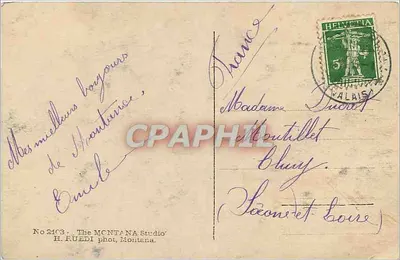 Mes meilleurs bonjours
de Montana,
Emile
No 2403 - The MONTANA Studio
H. RUEDI phot, Montana.
CPAPHIL.com
France
HELVETIA
5
VALAIS
Madame Ducret
Montillet
Cluny
(Saône et Loire)